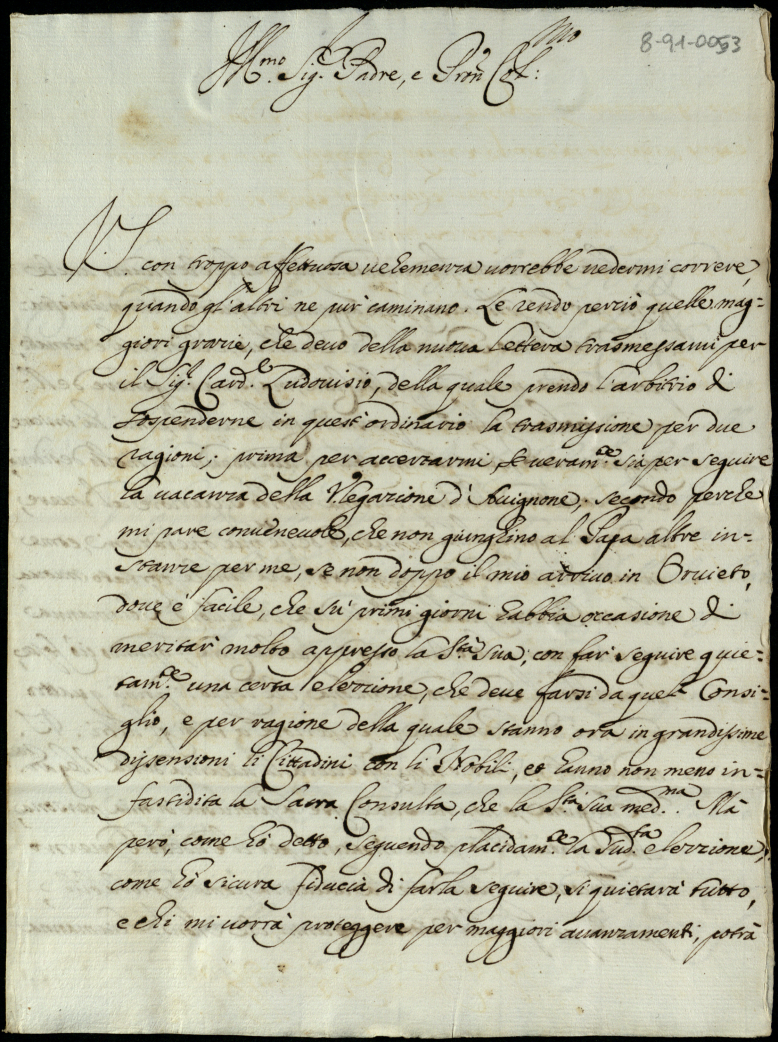 8-91-0053
Ill.mo Sig.r Padre, e Pron Col:mo
V.S. con troppo affettuosa uehemenza uorrebbe uedermi correre,
quando gl'altri ne pur' caminano. Le rendo perciò quelle mag=
giori grazie, che deuo della nuoua lettera trasmessami per
il Sig.r Card.le Ludouisio, della quale prendo l'arbitrio di
sospenderne in quest'ordinario la trasmissione per due
ragioni; prima per accertarmi se ueram.te sia per seguire
la uacanza della Vlegazione d'Auignone; secondo perche
mi pare conueneuole, che non giunghino al Papa altre in=
stanze per me, se non doppo il mio arriuo in Oruieto,
doue è facile, che sù primi giorni habbia occasione di
meritar' molto appresso la S.tà Sua, con far' seguire quie=
tam.te una certa elezzione, che deue farsi da quel Consi=
glio, e per ragione della quale stanno ora in grandissime
dissensioni li Cittadini con li Nobili, et hanno non meno in=
fastidita la Sacra Consulta, che la S.tà Sua med.ma. Mà
però, come hò detto, seguendo placidam.te la sud.ta elezzione,
come hò sicura fiducia di farla seguire, si quietarà tutto,
e chi mi uorrà proteggere per maggiori auanzamenti, potrà